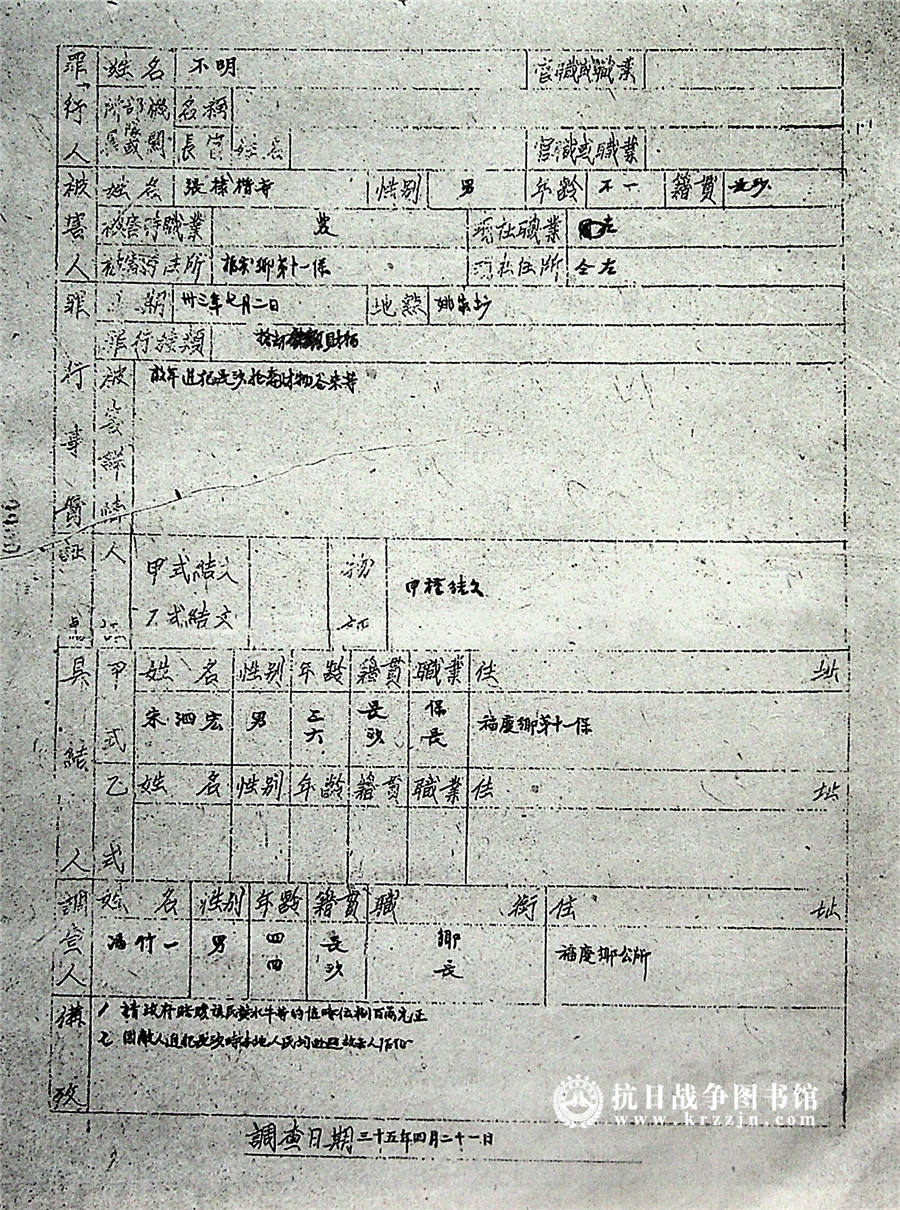 罪行人 姓名 不明 官職或職業
所部機 名稱
屬隊或關 長官 姓名 官職或職業
被害人 姓名 張 等 性別 男 年齡 不一 籍貫 長沙
被害時職業 農 現在職業 左
被害時住所 鄉第十一保 現在住所 仝左
罪行事實 日期 卅三年七月二日 地點 姚家
罪行種類 財物
被害詳情 敵年進犯長沙搶奪財物谷米等
証 人証 甲式結文 物証 甲種結文
乙式結文
具結人 甲式 姓名 性別 年齡 籍貫 職業 住址
宋泗宏 男 三六 長沙 保長 福慶鄉第十一保
乙式 姓名 性別 年齡 籍貫 職業 住址
調查人 姓名 性別 年齡 籍貫 職銜 住址
竹一 男 四四 長沙 鄉長 福慶鄉公所
備攷 1 請政府賠 該民 水牛等約值 伍 百萬元正
2 因敵人進犯長沙時本地人民均
調查日期 三十五年四月二十一日
抗日战争图书馆
www.krzzjn.com